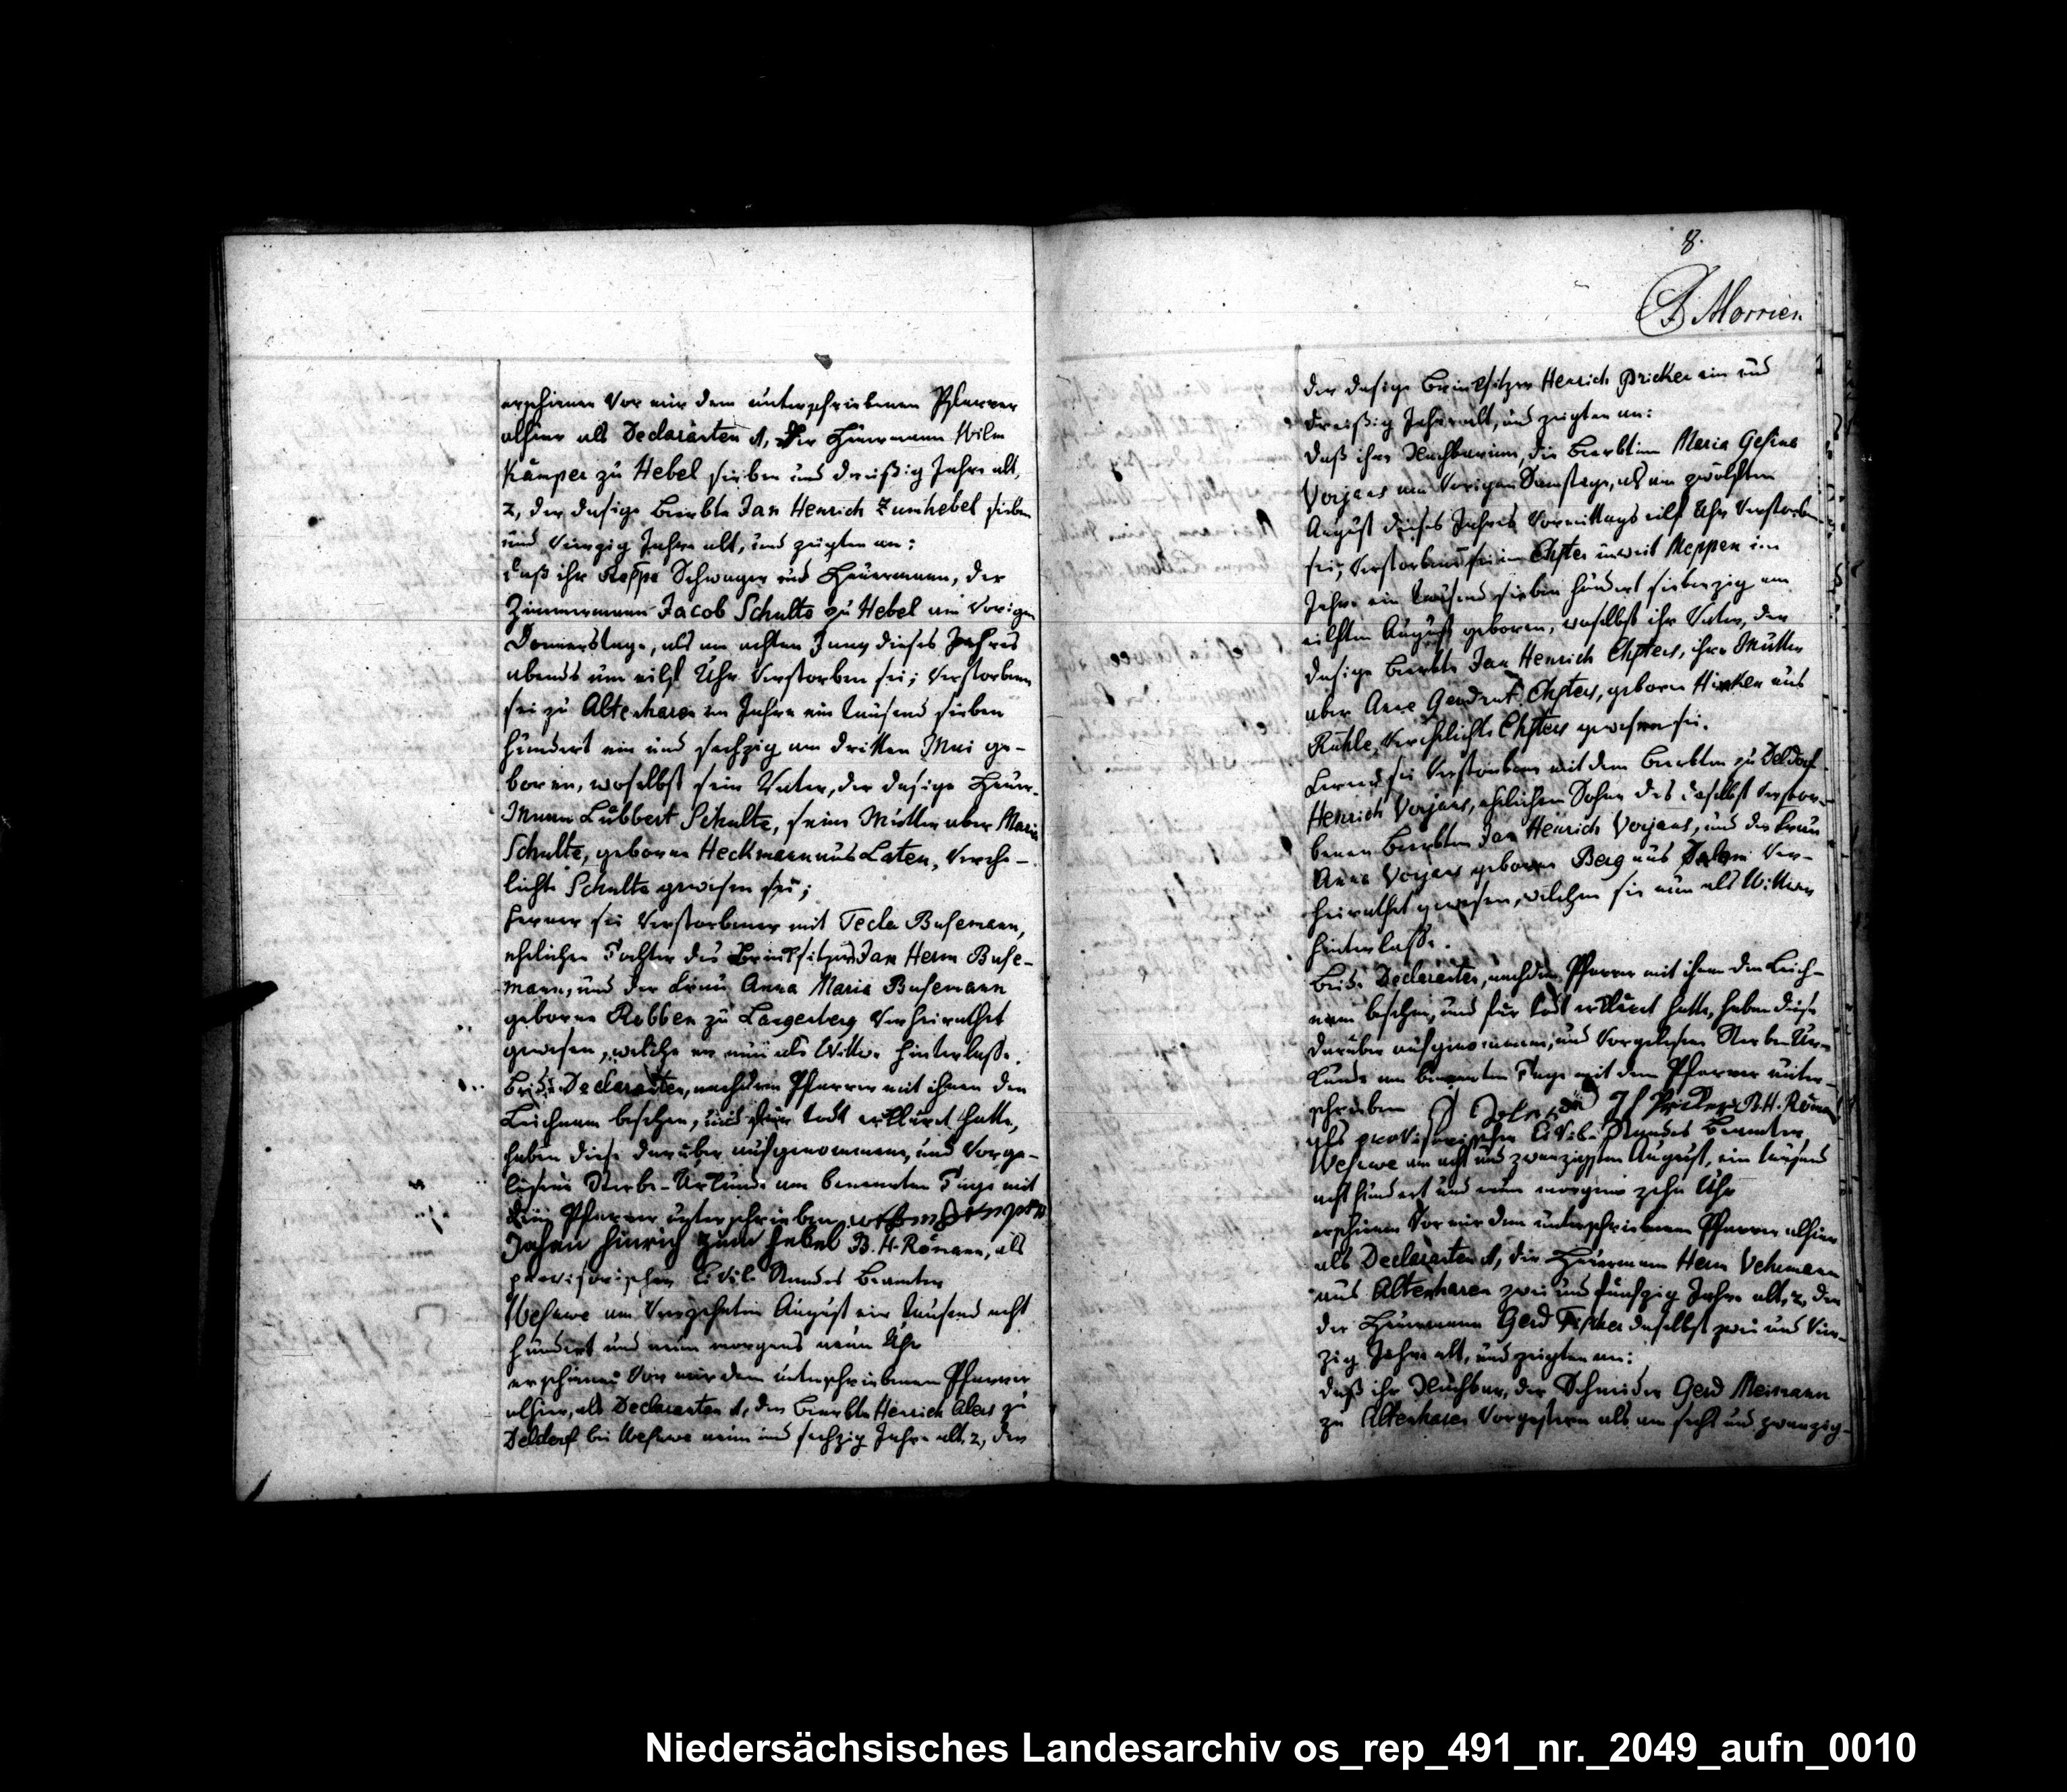 erschienen vor mir dem unterschriebenen Pfarrer
alhier als Declaranten 1, der Heuermann Wilm
Kämper zu Hebel sieben und dreißig Jahre alt,
2, der dasige Beerbte Jan Henrich Zumhebel sieben
und vierzig Jahre alt, und zeigten an:
daß ihr Schwager und Heuermann, der
Zimmermann Jacob Schulte zu Hebel am vorigen
Donnerstage, als am achten Juny dieses Jahres
abends um eilf Uhr verstorben sei; verstorbener
sei zu Altenharen im Jahre ein tausend sieben
hundert ein und sechzig am dritten Mai ge-
boren, woselbst sein Vater, der dasige Heuer-
mann Lübbert Schulte, seine Mutter aber Maria
Schulte, geborne Heckmann aus Laten, verehe-
lichte Schulte gewesen sei;
ferner sei verstorbener mit Tecla Busemann,
ehelicher Tochter des Brinksitzers Jan Herm Buse-
mann, und der Frau Anna Maria Busemann
geborne Robben zu Langenberg verheirathet
gewesen, welche er nun als Wittwe hinterlasse.
Beide Declaranten, nachdem Pfarrer mit ihnen den
Leichnam besehen, und für todt erklärt hatte,
haben diese darüber aufgenommene, und vorge-
lesene Sterbe-Urkunde am benannten Tage mit
dem Pfarrer unterschrieben
Johan Hinrich zum Hebel B. H. Römann, als
provisorischer Civil-Standes Beamter
Wesuwe am vierzehnten August ein tausend acht
hundert und neun morgens neun Uhr
erschienen vor mir dem unterschriebenen Pfarrer
alhier, als Declaranten 1, der Beerbte Henrich Alers zu
Deldorf bei Wesuwe neun und sechzig Jahre alt, 2, der
8.
Morrien
der dasige Brinksitzer Henrich Pricker ein und
dreißig Jahre alt, und zeigten an:
daß ihre Nachbarinn, die Beerbtinn Maria Gesina
Vorjans am vorigen Samstage, als am zwölften
August dieses Jahres Vormittags eilf Uhr verstorben
sei; verstorbene sei in Chster unweit Meppen im
Jahre ein tausend sieben hundert siebenzig am
eilften August geboren, woselbst ihr Vater, der
dasige Beerbte Jan Henrich Chsters, ihre Mutter
aber Anne Chsters, geborne Hinken aus
Rühle verehelichte Chsters gewesen sei.
ferner sei verstorbene mit dem Beerbten zu Deldorf
Henrich Vorjans, ehelichen Sohne des daselbst verstor-
benen Beerbten Jan Henrich Vorjans, und der Frau
Anna Vorjans geborne Berg aus ver-
heirathet gewesen, welchen sie nun als Wittwer
hinterlasse.
Beide Declaranten, nachdem Pfarrer mit ihnen den Leich-
nam besehen, und für todt erklärt hatte, haben diese
darüber aufgenommene, und vorgelesene Sterbe-Ur-
kunde am benannten Tage mit dem Pfarrer unter-
schrieben B. H. Römann
als provisorischer Civil-Standes Beamter
Wesuwe am acht und zwanzigsten August, ein tausend
acht hundert und neun morgens zehn Uhr
erschienen vor mir dem unterschriebenen Pfarrer alhier
als Declaranten 1, der Heuermann Herm Vehmann
aus Altenharen zwei und fünfzig Jahre alt, 2, der
der Heuermann Gerd Fischer daselbst zwei und vier-
zig Jahre alt, und zeigten an:
daß ihr Nachbar, der Schneider Gerd Meimann
zu Altenharen vorgestern als am sechs und zwanzig-
Niedersächsisches Landesarchiv os_rep_491_nr._2049_aufn_0010